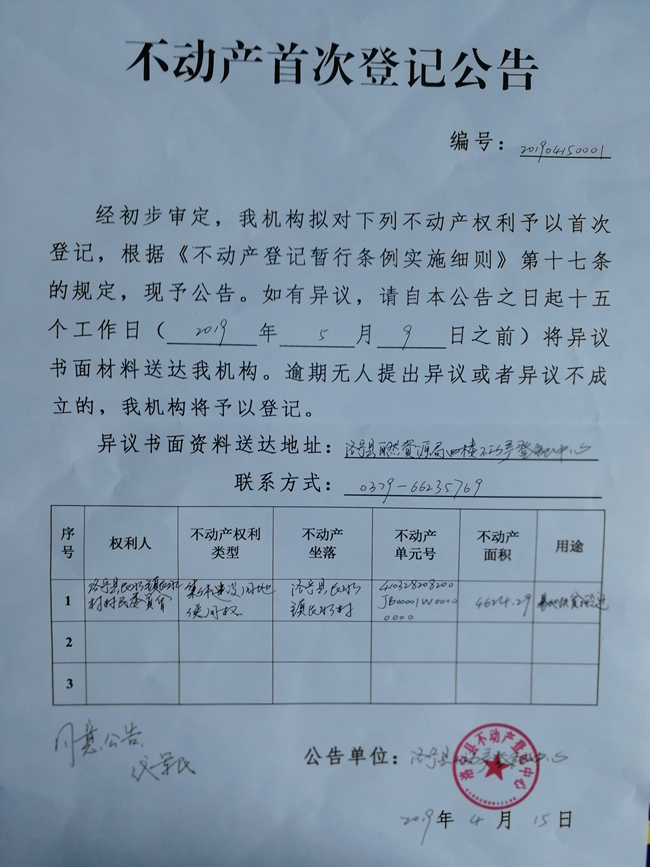 不动产首次登记公告
编号：201904150001
经初步审定，我机构拟对下列不动产权利予以首次
登记，根据《不动产登记暂行条例实施细则》第十七条
的规定，现予公告。如有异议，请自本公告之日起十五
个工作日（2019年5月9日之前）将异议
书面材料送达我机构。逾期无人提出异议或者异议不成
立的，我机构将予以登记。
异议书面资料送达地址：洛宁县自然资源局四楼不动产登记中心
联系方式：0379-66235769
序号 权利人 不动产权利类型 不动产坐落 不动产单元号 不动产面积 用途
1 洛宁县长水镇长水村村民委员会 集体建设用地使用权 洛宁县长水镇长水村 410328208200JB00001W00000000 4624.29
2
3
同意公告
公告单位：洛宁县不动产登记中心
洛宁县不动产登记中心
2019年4月15日